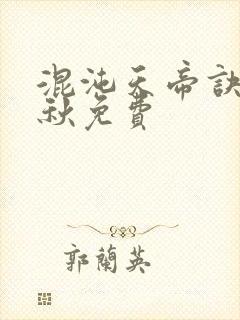 混沌天帝訣
秋免費
郭蘭英